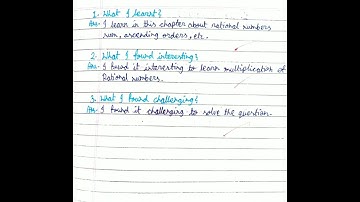 1. What I learnt?
Ans- I learn in this chapter about rational numbers
sum, ascending orders, etc.
2. What I found interesting?
Ans- I found it interesting to learn multiplication of
Rational numbers.
3. What I found challenging?
Ans- I found it challenging to solve the question.